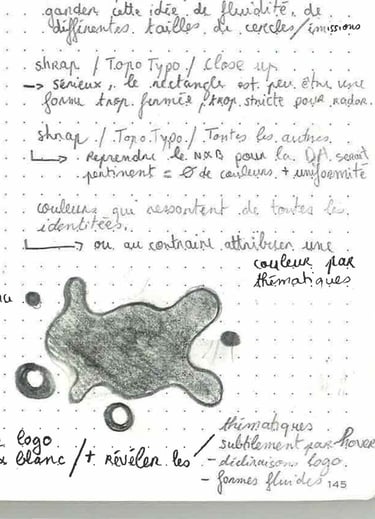 garder cette idée de fluidité, de
différentes tailles de cercles/émissions
shrap / Topo Typo / Close up
→ sérieux, le rectangle est peu être une
forme trop fermée, trop stricte pour radar.
shrap / Topo Typo / Toutes les autres
↳ Reprendre le N&B pour la DA serait
pertinent = Ø de couleurs + uniformité
couleurs qui ressortent de toutes les
identitées.
↳ ou au contraire attribuer une
couleur par
thématiques
logo
blanc / + révéler les / thématiques
subtilement par hover
- déclinaisons logo.
- formes fluides
145